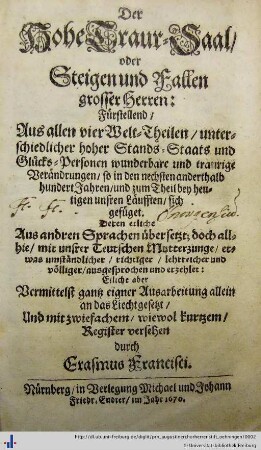 Der
Hohe Traur-Saal/
oder
Steigen und Fallen
grosser Herren:
Fürstellend/
Aus allen vier Welt-Theilen/ unter-
schiedlicher hoher Stands-Staats und
Glücks-Personen wunderbare und traurige
Verändrungen/ so in den nechsten anderthalb
hundert Jahren/ und zum Theil bey heu-
tigen unsren Läufften/ sich
gefüget.
Deren etliche
Aus andren Sprachen übersetzt; doch all-
hie/ mit unsrer Teutschen Mutterzunge/ et-
was umständlicher/ richtiger/ lehrreicher und
völliger/ ausgesprochen und erzehlet:
Etliche aber
Vermittelst gantz eigner Ausarbeitung allein
an das Liecht gesetzt/
Und mit zwiefachem/ wiewol kurtzem/
Register versehen
durch
Erasmus Francisci.
Nürnberg/ in Verlegung Michael und Johann
Friedr. Endter/ im Jahr 1670.